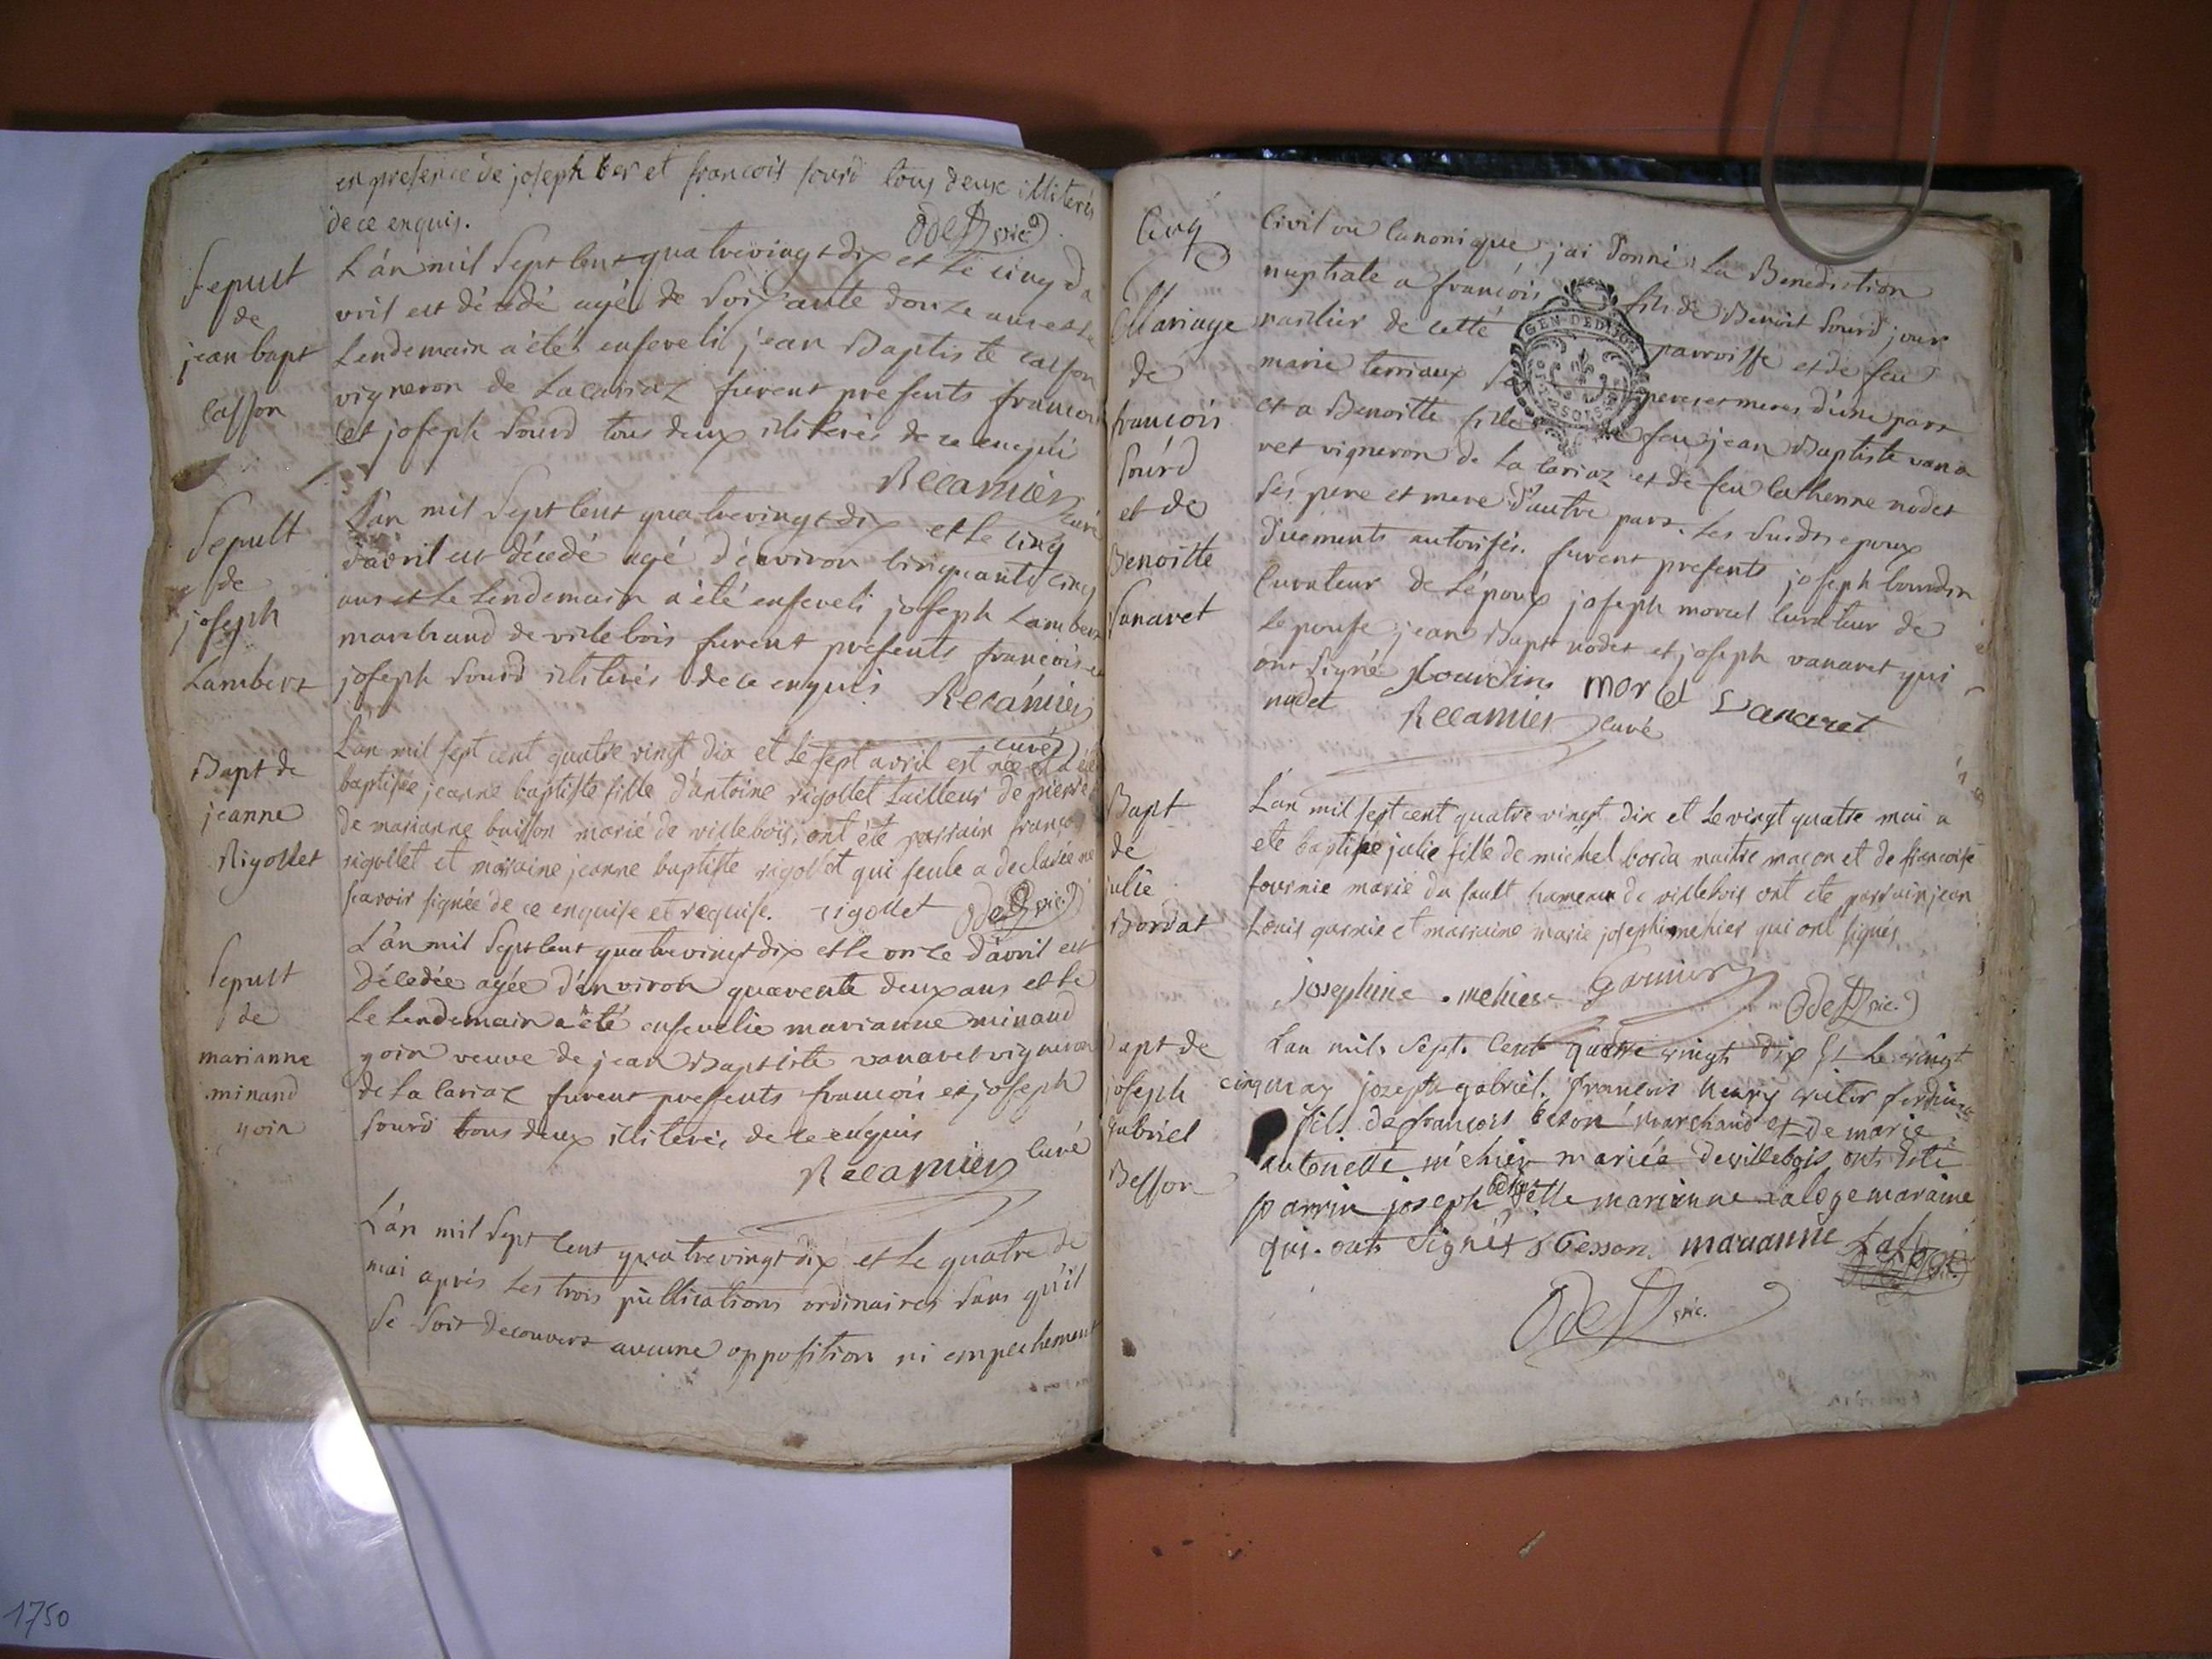 en presence de joseph ber et francois sourd tous deux illiterés
de ce enquis. Odet vic.
Sepult
de
jean bapt
Casson
L'an mil Sept Cent quatrevingt dix et le cinq da
vril est décedé agé de Soixante douze ans et le
Lendemain a été enseveli jean Baptiste casson
vigneron de Lacariaz furent presents francois
et joseph Sourd tous deux illiterés de ce enquis
Recamier curé
Sepult
de
joseph
Lambert
L'an mil Sept Cent quatrevingt dix et le cinq
d'avril est décedé agé d'environ Cinquante cinq
ans et le Lendemain a été enseveli joseph Lambert
marchand de villebois furent présents francois et
joseph Sourd illiterés de ce enquis Recamier
curé
Bapt de
jeanne
Rigollet
L'an mil sept cent quatre vingt dix et le sept avril est née et a été
baptisée jeanne baptiste fille d'antoine rigollet tailleur de pierre
de marianne buisson marié de villebois, ont été parrain françois
rigollet et maraine jeanne baptiste rigollet qui seule a declarée ne
scavoir signée de ce enquise et requise. rigollet Odet vic.
Sepult
de
marianne
minand
goin
L'an mil Sept Cent quatrevingt dix et le onze d'avril est
décedée agée d'environ quarente deux ans et le
Le Lendemain a été ensevelie marianne minand
goin veuve de jean Baptiste vanaret vigneron
de La Cariaz furent presents francois et joseph
Sourd tous deux illiterés de ce enquis
Recamier Curé
L'an mil Sept Cent quatrevingt dix et le quatre de
mai aprés Les trois publications ordinaires Sans qu'il
Se Soit decouvert aucune opposition ni empechement
Cinq
Civil ou Canonique j'ai donné La Benediction
Mariage
de
francois
Sourd
et de
Benoitte
Vanaret
nuptiale a francois fils de Benoit Sourd jour
nailier de cette parroisse et de feu
marie terriaux Ses peres et meres d'une part
et a Benoitte fille de feu jean Baptiste vana
ret vigneron de La Cariaz et de feu Catherine nodet
Ses pere et mere d'autre part. Les Susdits epoux
duements autorisés. furent presents joseph bourdin
Curateur de L'époux joseph morel Curateur de
L'epouse jean Bapt nodet et joseph vanaret qui
ont Signé Bourdin morel Vanaret
nodet Recamier curé
Bapt
de
julie
Bordat
L'an mil sept cent quatre vingt dix et le vingt quatre mai a
ete baptisée julie fille de michel borda maitre maçon et de francoise
fournie marié du sault hameau de villebois ont ete parrain jean
Louis garnie et marraine marie josephine mehier qui ont signés
josephine mehier Garnier Odet vic.
Bapt de
joseph
Gabriel
Besson
Lan mil Sept Cent quatre vingts dix Et Le vingt
cinq may jozeph gabriel francois henry victor ferdinand
fils de francois beson marchand et de marie
antonette méhier mariés de villebois onts été
parrin joseph beson et Elle marianne Laloge maraine
qui onts Signés Besson marianne Laloge
Odet vic.
1750
GEN DE DIJON